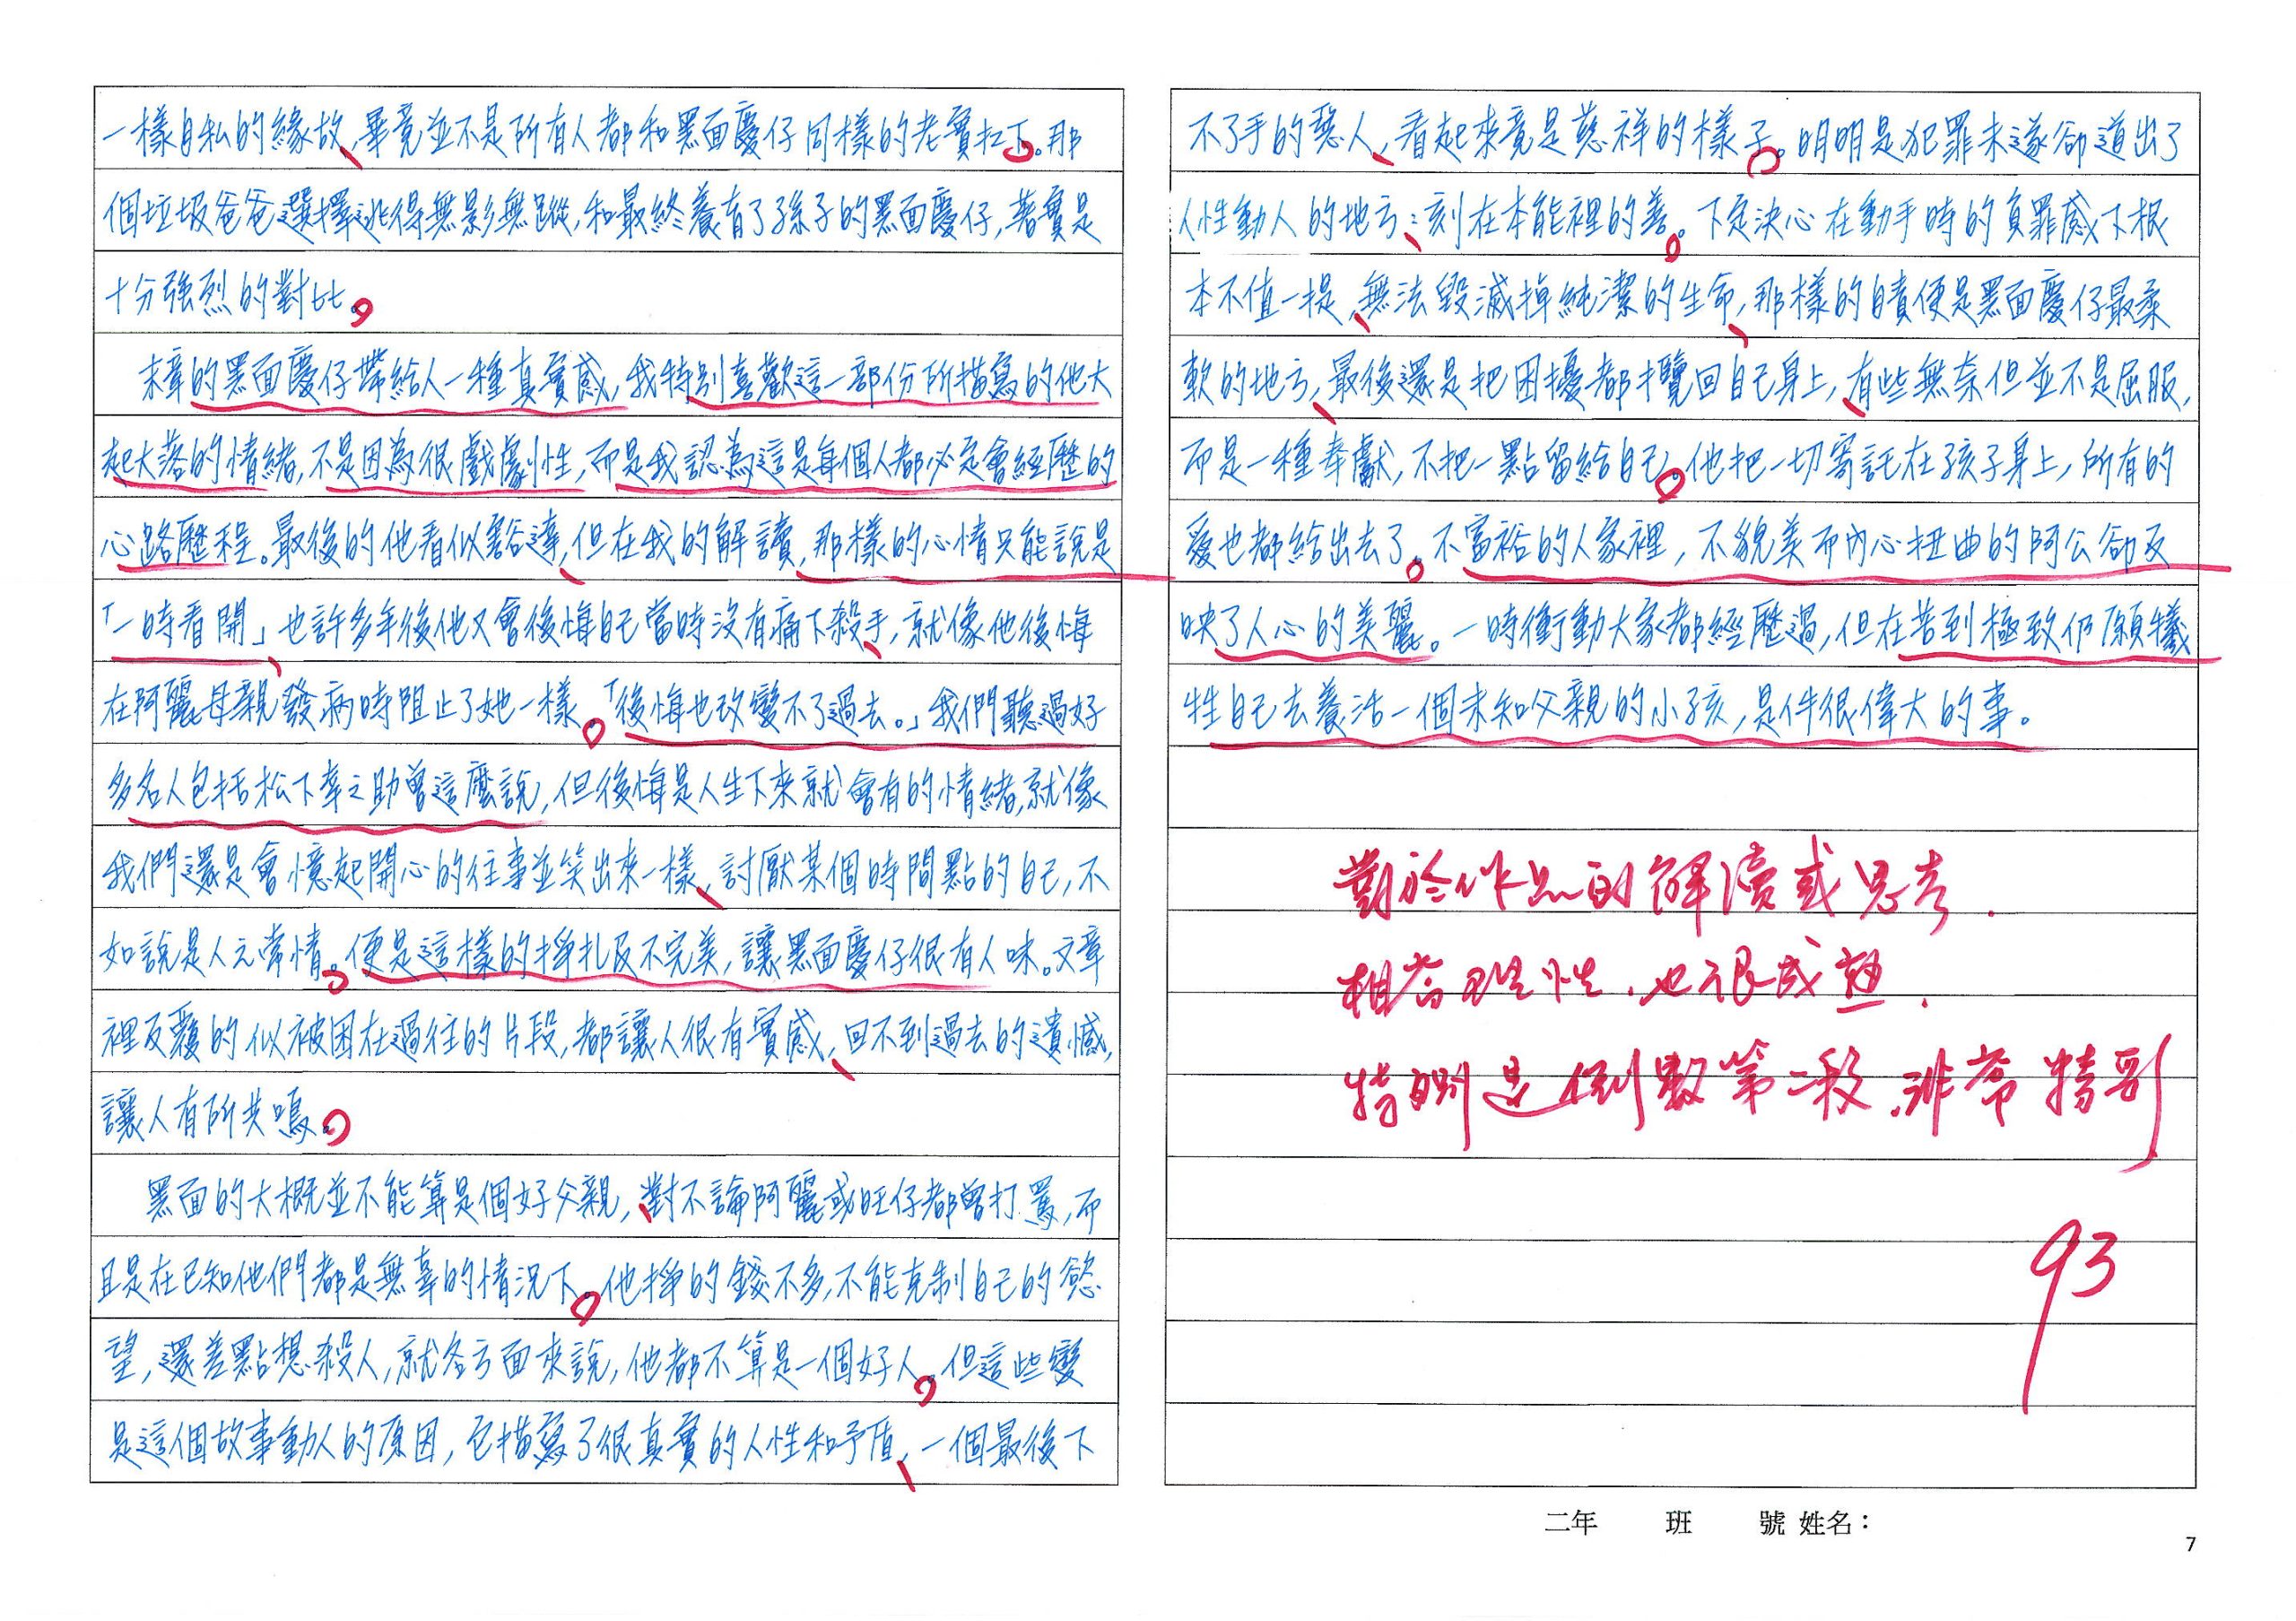 一樣自私的緣故,畢竟並不是所有人都和黑面慶仔同樣的老實扛下。那
個垃圾爸爸選擇逃得無影無蹤,和最終養育了孫子的黑面慶仔,著實是
十分強烈的對比。
末章的黑面慶仔帶給人一種真實感,我特別喜歡這一部份所描寫的他大
起大落的情緒,不是因為很戲劇性,而是我認為這是每個人都必定會經歷的
心路歷程。最後的他看似豁達,但在我的解讀,那樣的心情只能說是
「一時看開」也許多年後他又會後悔自己當時沒有痛下殺手,就像他後悔
在阿麗母親發病時阻止了她一樣。「後悔也改變不了過去。」我們聽過好
多名人包括松下幸之助曾這麼說,但後悔是人生下來就會有的情緒,就像
我們還是會憶起開心的往事並笑出來一樣,討厭某個時間點的自己,不
如說是人之常情。便是這樣的掙扎及不完美,讓黑面慶仔很有人味。文章
裡反覆的似被困在過往的片段,都讓人很有實感,回不到過去的遺憾,
讓人有所共鳴。
黑面的大概並不能算是個好父親,對不論阿麗或旺仔都曾打罵,而
且是在已知他們都是無辜的情況下。他掙的錢不多,不能克制自己的慾
望,還差點想殺人,就各方面來說,他都不算是一個好人。但這些變
是這個故事動人的原因,它描寫了很真實的人性和矛盾,一個最後下
不了手的惡人,看起來竟是慈祥的樣子。明明是犯罪未遂卻道出了
人性動人的地方:刻在本能裡的善。下定決心在動手時的負罪感下根
本不值一提,無法毀滅掉純潔的生命,那樣的自責便是黑面慶仔最柔
軟的地方,最後還是把困擾都攬回自己身上,有些無奈但並不是屈服,
而是一種奉獻,不把一點留給自己。他把一切寄託在孩子身上,所有的
愛也都給出去了。不富裕的人家裡,不貌美而內心扭曲的阿公卻反
映了人心的美麗。一時衝動大家都經歷過,但在苦到極致仍願犧
牲自己去養活一個未知父親的小孩,是件很偉大的事。
對於作品的解讀或思考.
相當理性.也很成熟.
特別是倒數第二段.非常特別
93
二年 班 號 姓名:
7